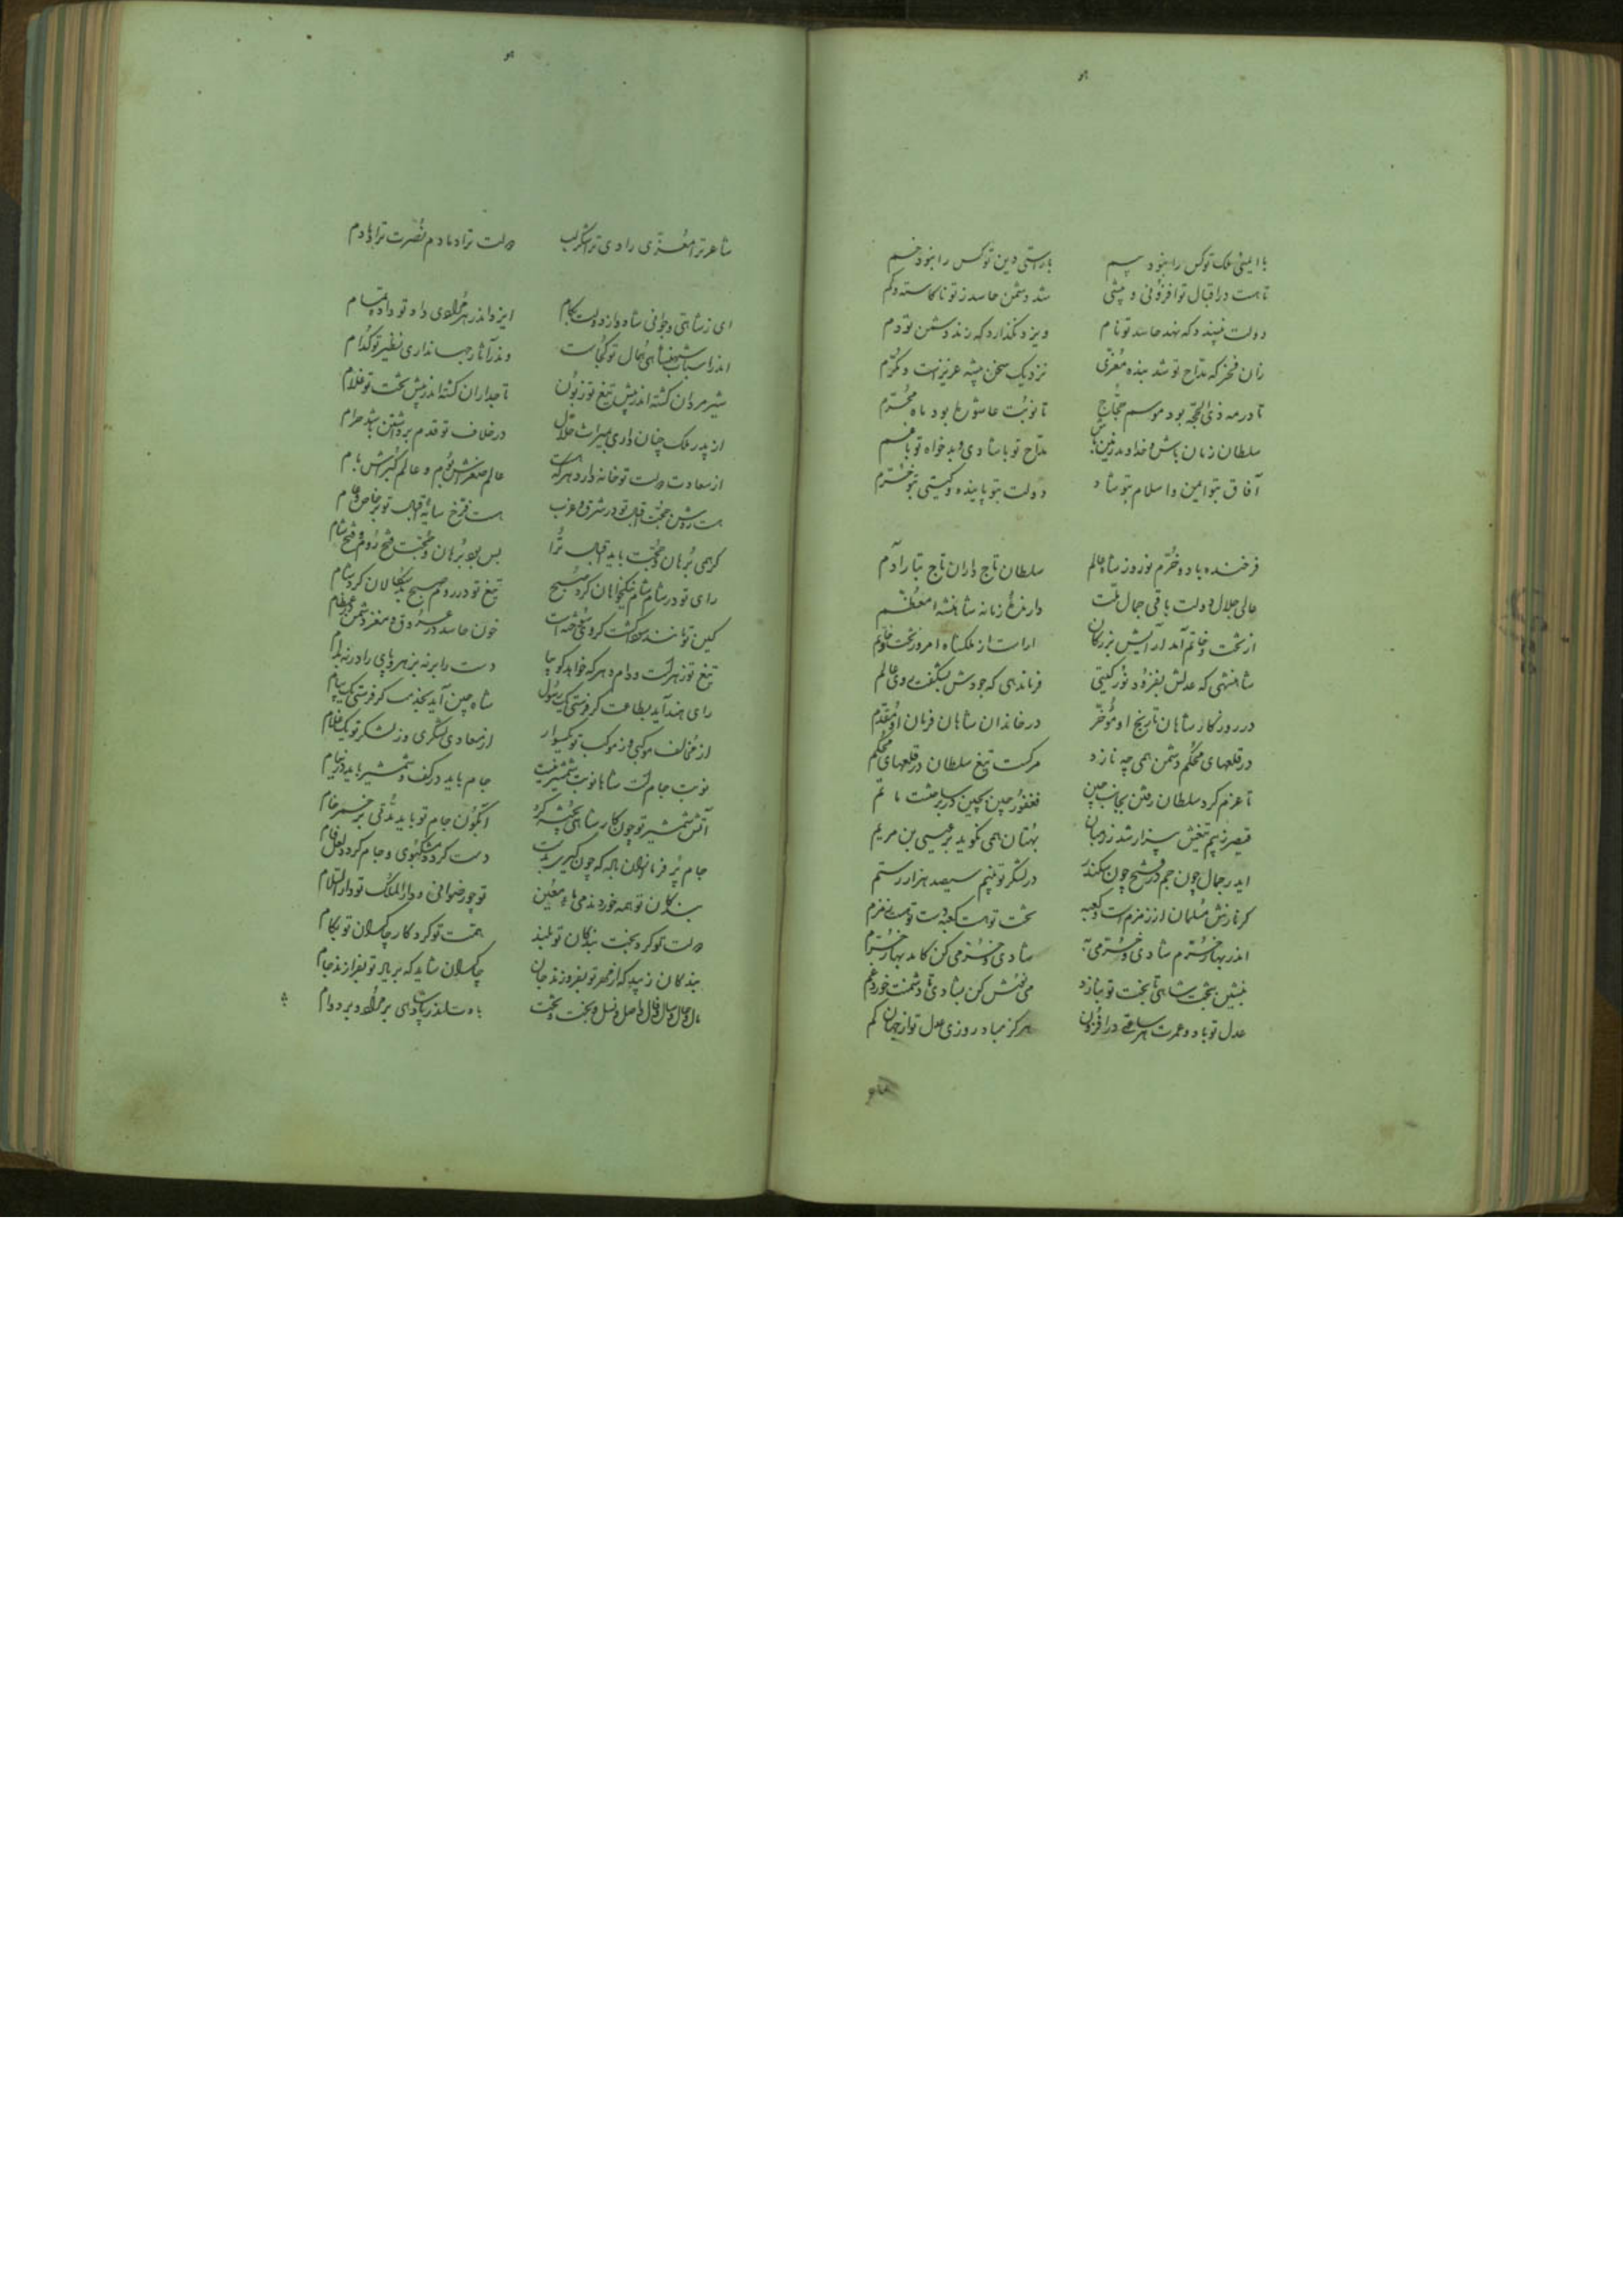 با ایمنی ملک تو کس را نبود بیم
با راستی دین تو کس را نبود خم
تا هست در اقبال تو افزونی و بیشی
شد دشمن و حاسد ز تو ناکاسته و کم
دولت نپسندد که نهد حاسد تو نام
ویزد نگذارد که زند دشمن تو دم
زان فخر که مداح تو شد بنده معزی
نزدیک سخن پیشه عزیزست و مکرم
تا در مه ذی الحجه بود موسم حجاج
تا نوبت عاشورا بود ماه محرم
سلطان زمان باش و خداوند زمین باش
مداح تو با شادی و بدخواه تو با غم
آفاق بتو ایمن و اسلام بتو شاد
دولت بتو پاینده و گیتی بتو خرم
فرخنده باد و خرم نوروز شاه عالم
سلطان تاج داران تاج تبار آدم
عالی جلال دولت باقی جمال ملت
دارنده زمانه شاهنشه معظم
از تخت و خاتم آمد آرایش بزرگان
آراست از ملکشاه امروز تخت و خاتم
شاهنشهی که عدلش بفزود نور گیتی
فرماندهی که جودش بشکفت روی عالم
در روزگار شاهان تاریخ او مؤخر
در خاندان شاهان فرمان او مقدم
در قلعهای محکم دشمن همی چه نازد
مرگست تیغ سلطان در قلعهای محکم
تا عزم کرد سلطان رفتن بجانب چین
فغفور چین بچین در بساخت ماتم
قیصر ز بیم تیغش بیزار شد ز رهبان
بهتان همی نگوید بر عیسی بن مریم
اید ر جمال چون جم در فتح چون سکندر
در لشکر تو بینم سیصد هزار رستم
گر نازش مسلمان از زمزم است و کعبه
تخت تو هست کعبه دست تو هست زمزم
اندر بهار خرم شادی و خرمی به
شادی و خرمی کن کامد بهار خرم
بنشین بتخت شاهی تا بخت تو بنازد
می نوش کن بشادی تا دشمنت خورد غم
عدل تو باد و عمرت هر ساعتی در افزون
هرگز مباد روزی عدل تو از جهان کم
شاعر ترا معزی رادی ترا
دولت ترا دمادم نصرت ترا دمادم
ای ز شاهی و جوانی شاد و از دولت بکام
ایزد اندر هر مرادی داد تو داده تمام
اندر اسباب شهنشاهی همال تو کجاست
وندر آثار جهانداری نظیر تو کدام
شیر مردان گشته اند پیش تیغ تو زبون
تاجداران گشته اند پیش تخت تو غلام
از پدر ملک چنان داری میراث حلال
در خلاف تو قدم برداشتن باشد حرام
از سعادت دولت تو خانه دارد هر که هست
عالم صغرش بوم و عالم کبراش بام
هست روشن حجت اقبال تو در شرق و غرب
هست فرخ سایه اقبال تو بر خاص و عام
گر همی برهان و حجت باید اقبال ترا
بس بود برهان و حجت فتح روم و فتح شام
رای تو در شام شام نیکخواهان کرد صبح
تیغ تو در روم صبح بدسگالان کرد شام
کین تو مانند آتش گشت گویی خشت
خون حاسد در عروق و مغز دشمن در عظام
تیغ تو زهرست و دام و هر که خواهد گو بیا
دست را برنه بزهر و پای را درنه بدام
رای هند آید بطاعت گر فرستی یک رسول
شاه چین آید بخدمت گر فرستی یک پیام
از مخالف موکبی وز موکب تو یکسوار
از معادی لشکری وز لشکر تو یک غلام
نوبت جام است شاها نوبت شمشیر نیست
جام باید در کف و شمشیر باید در نیام
آتش شمشیر تو چون کار شاهی پخته کرد
آبگون جام تو باید تا رقی بر خم خام
جام پر فرمای از آن باده که چون گیری بدست
دست گردد مشکبوی و جام گردد لعل فام
بندگان تو همه خوردند می با حور عین
تو چو رضوانی و دار الملک تو دار السلام
دولت تو کرد بخت بندگان تو بلند
همت تو کرد کار چاکران تو بکام
بندگان زیبد که از مهر تو بفروزند جان
چاکران شاید که بر یاد تو بفرازند جام
مال و حال و سال و فال و اصل و نسل و بخت و تخت
بادت اندر پادشاهی بر مراد و بر دوام